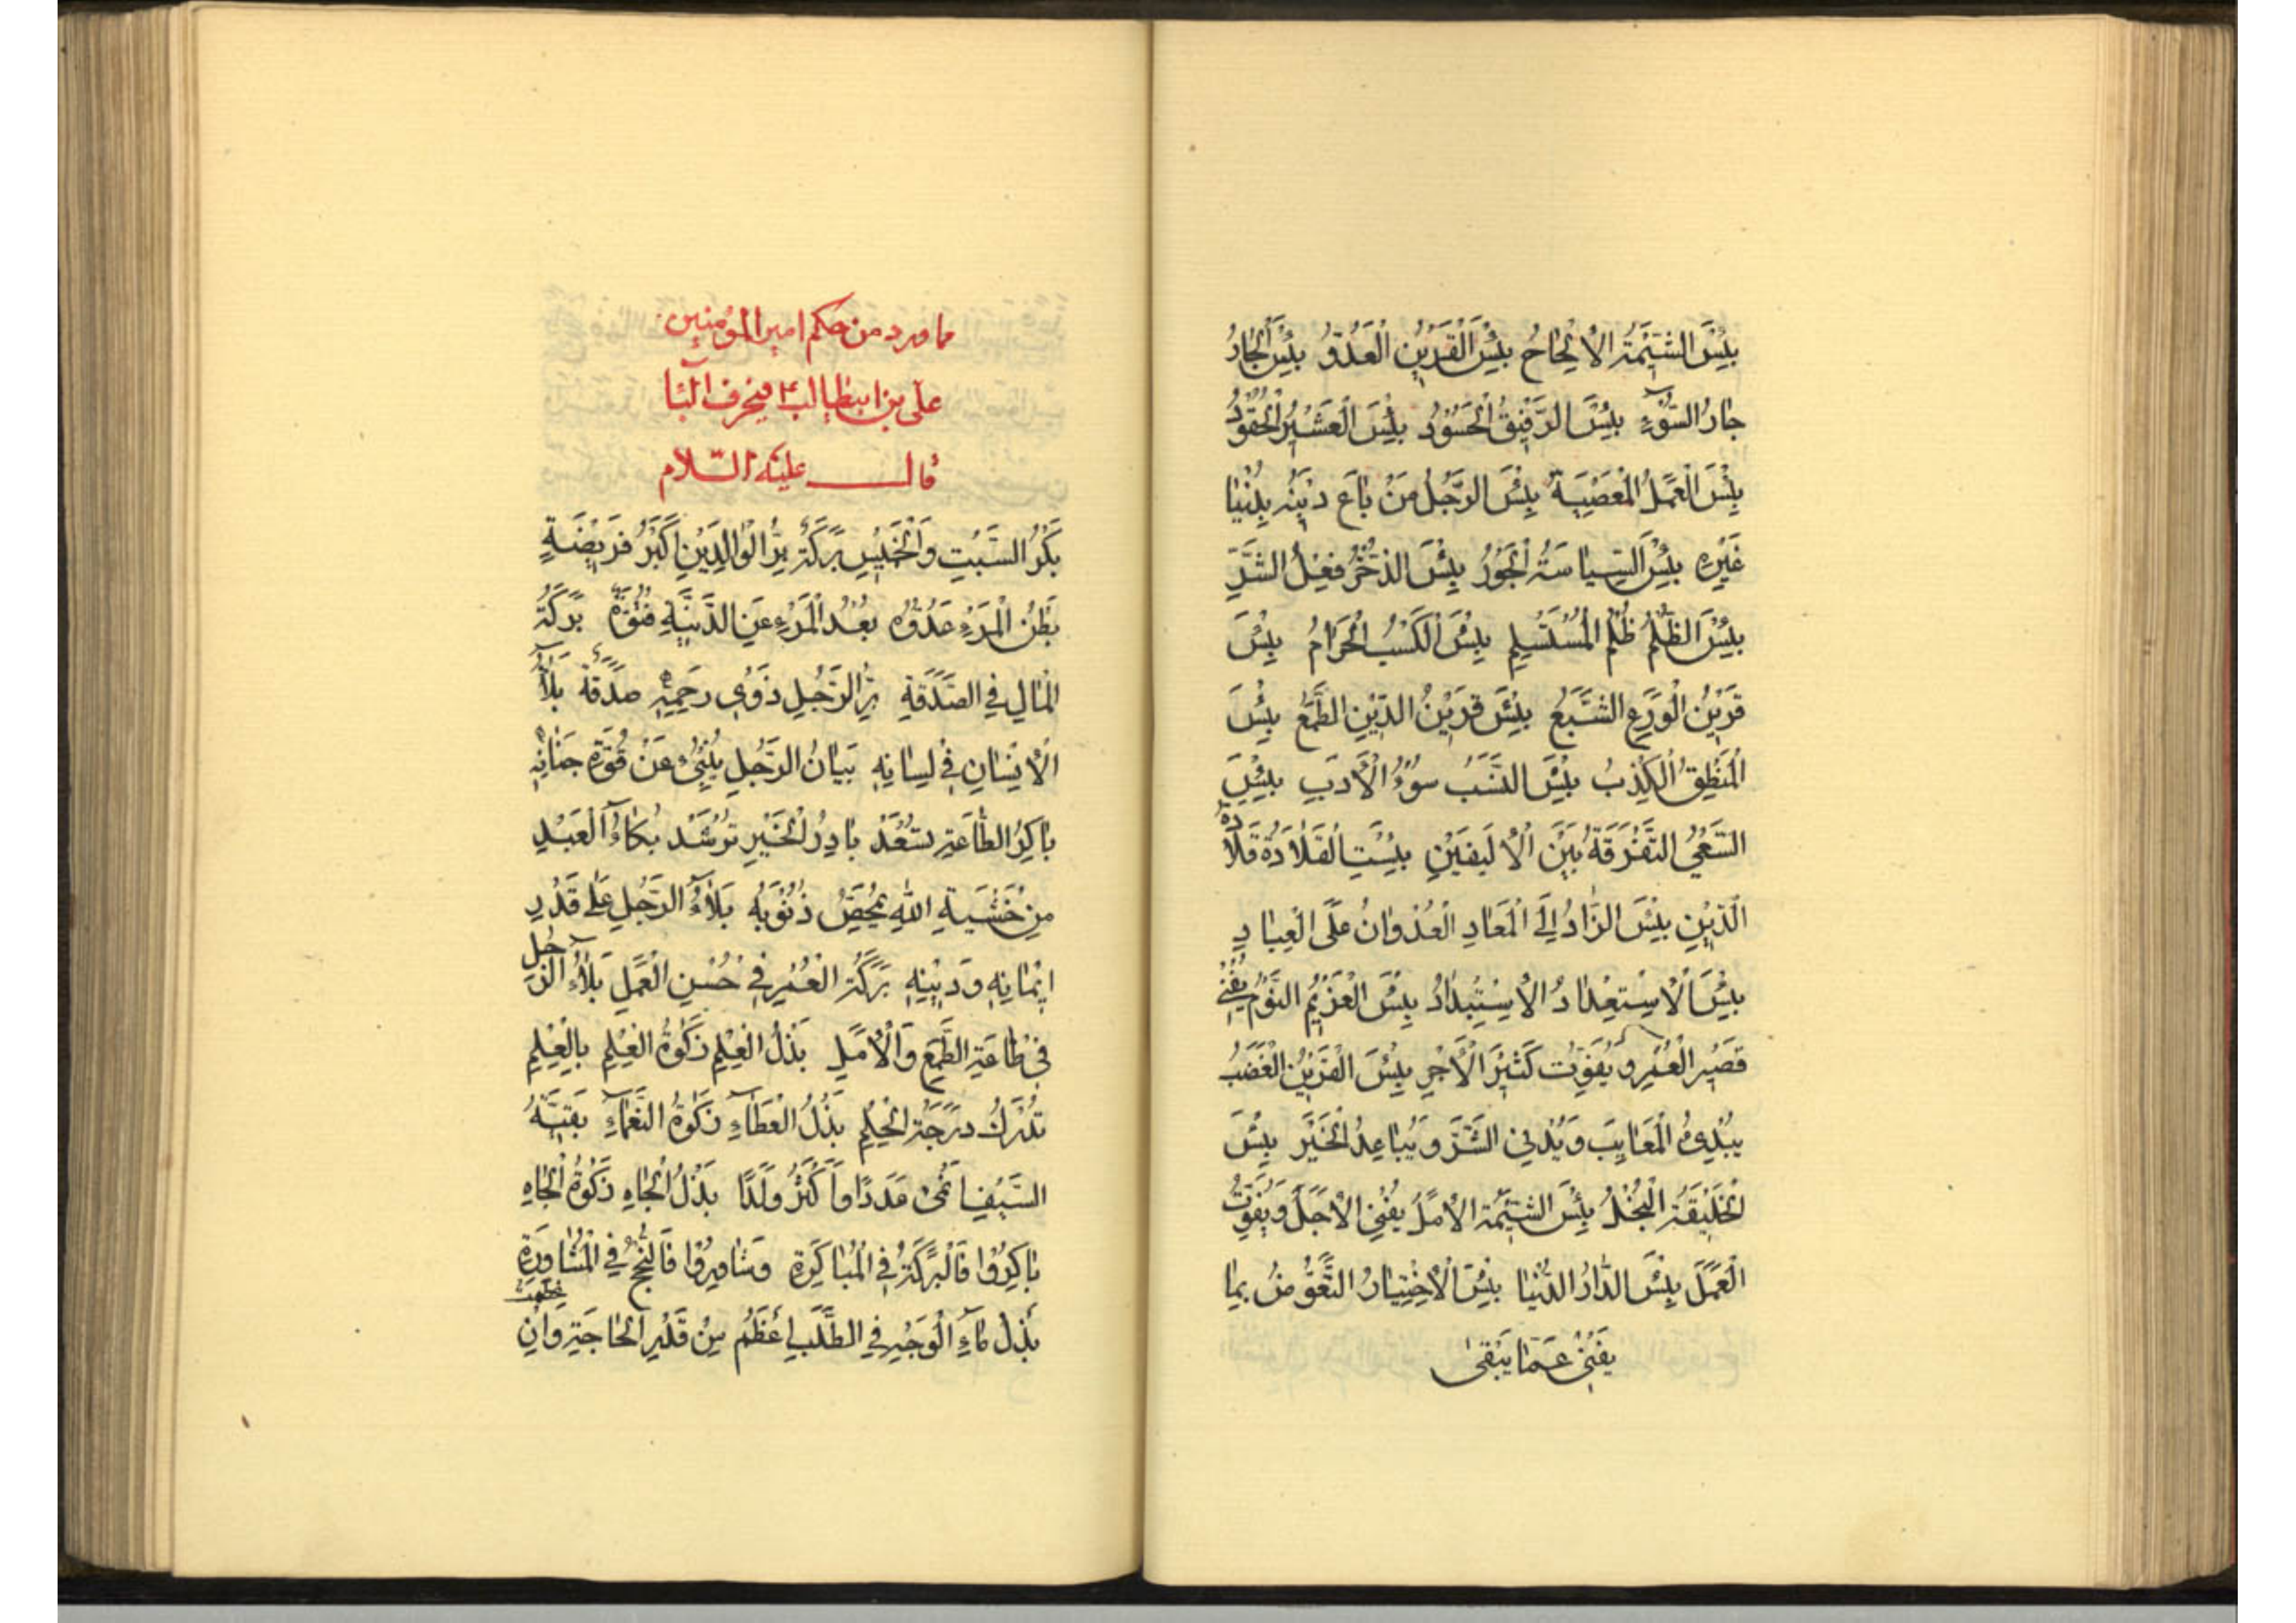 بِئْسَ الشّيمَةُ الْاِلْحاحُ بِئْسَ الْقَرينُ الْعَدُوُّ بِئْسَ الْجارُ
جارُ السُّوٓءِ بِئْسَ الرَّفيقُ الْحَسُودُ بِئْسَ الْعَشيرُ الْحَقُودُ
بِئْسَ الْعَمَلُ الْمَعْصِيَةُ بِئْسَ الرَّجُلُ مَنْ باعَ دينَهُ بِدُنْيا
غَيْرِهِ بِئْسَ السِّياسَةُ الْجَوْرُ بِئْسَ الذُّخْرُ فِعْلُ الشَّرِّ
بِئْسَ الظُّلْمُ ظُلْمُ الْمُسْتَسْلِمِ بِئْسَ الْكَسْبُ الْحَرامُ بِئْسَ
قَرينُ الْوَرَعِ الشَّبَعُ بِئْسَ قَرينُ الدّينِ الطَّمَعُ بِئْسَ
الْمَنْطِقُ الْكِذْبُ بِئْسَ النَّسَبُ سُوءُ الْأَدَبِ بِئْسَ
السَّعْيُ التَّفْرَقَةُ بَيْنَ الْأَليفَيْنِ بِئْسَتِ الْقَلادَةُ قَلادَةُ
الدَّيْنِ بِئْسَ الزّادُ اِلَى الْمَعادِ الْعُدْوانُ عَلَى الْعِبادِ
بِئْسَ الْاِسْتِعْدادُ الْاِسْتِبْدادُ بِئْسَ الْغَريمُ النَّوْمُ يُفْني
قَصيرَ الْعُمْرِ وَ يُفَوِّتُ كَثيرَ الْأَجْرِ بِئْسَ الْقَرينُ الْغَضَبُ
يُبْدِئُ الْمَعايِبَ وَ يُدْنِي الشَّرَّ وَ يُباعِدُ الْخَيْرَ بِئْسَ
الْخَليقَةُ الْبُخْلُ بِئْسَ الشّيمَةُ الْاَمَلُ يُفْنِي الْاَجَلَ وَ يُفَوِّتُ
الْعَمَلَ بِئْسَ الدّارُ الدُّنْيا بِئْسَ الْاِخْتِيارُ التَّعَوُّضُ بِما
يَفْنى عَمّا يَبْقى
ما ورد من حكم امير المؤمنين
على بن ابيطالب ع في حرف البآء
قال عليه السّلام
بَكْرُ السَّبْتِ وَالْخَميسِ بَرَكَةٌ بِرُّ الْوالِدَيْنِ اَكْبَرُ فَريضَةٍ
بَطْنُ الْمَرْءِ عَدُوُّهُ بُعْدُ الْمَرْءِ عَنِ الدَّنِيَّةِ فُتُوَّةٌ بَرَكَةُ
الْمالِ فِي الصَّدَقَةِ بِرُّ الرَّجُلِ ذَوي رَحِمِهِ صَدَقَةٌ بَلآءُ
الْاِنْسانِ في لِسانِهِ بَيانُ الرَّجُلِ يُنْبِئُ عَنْ قُوَّةِ جَنانِهِ
باكِرُ الطّاعَةِ تُسْعَدْ بادِرُ الْخَيْرِ تُرْشَدْ بُكآءُ الْعَبْدِ
مِنْ خَشْيَةِ اللّهِ يُمَحِّصُ ذُنُوبَهُ بَلآءُ الرَّجُلِ عَلى قَدْرِ
ايمانِهِ وَ دينِهِ بَرَكَةُ الْعُمْرِ في حُسْنِ الْعَمَلِ بَلآءُ الرَّجُلِ
في طاعَةِ الطَّمَعِ وَالْاَمَلِ بَذْلُ الْعِلْمِ زَكوةُ الْعِلْمِ بِالْعِلْمِ
تُدْرَكُ دَرَجَةُ الْحِلْمِ بَذْلُ الْعَطآءِ زَكوةُ النَّعْمآءِ بَقِيَّةُ
السَّيْفِ اَنْمى عَدَدًا وَ اَكْثَرُ وَلَدًا بَذْلُ الْجاهِ زَكوةُ الْجاهِ
باكِرُوا فَالْبَرَكَةُ فِي الْمُباكَرَةِ وَ شاوِرُوا فَالنُّجْحُ فِي الْمُشاوَرَةِ
بَذْلُ مآءِ الْوَجْهِ فِي الطَّلَبِ اَعْظَمُ مِنْ قَدْرِ الْحاجَةِ وَاِنْ